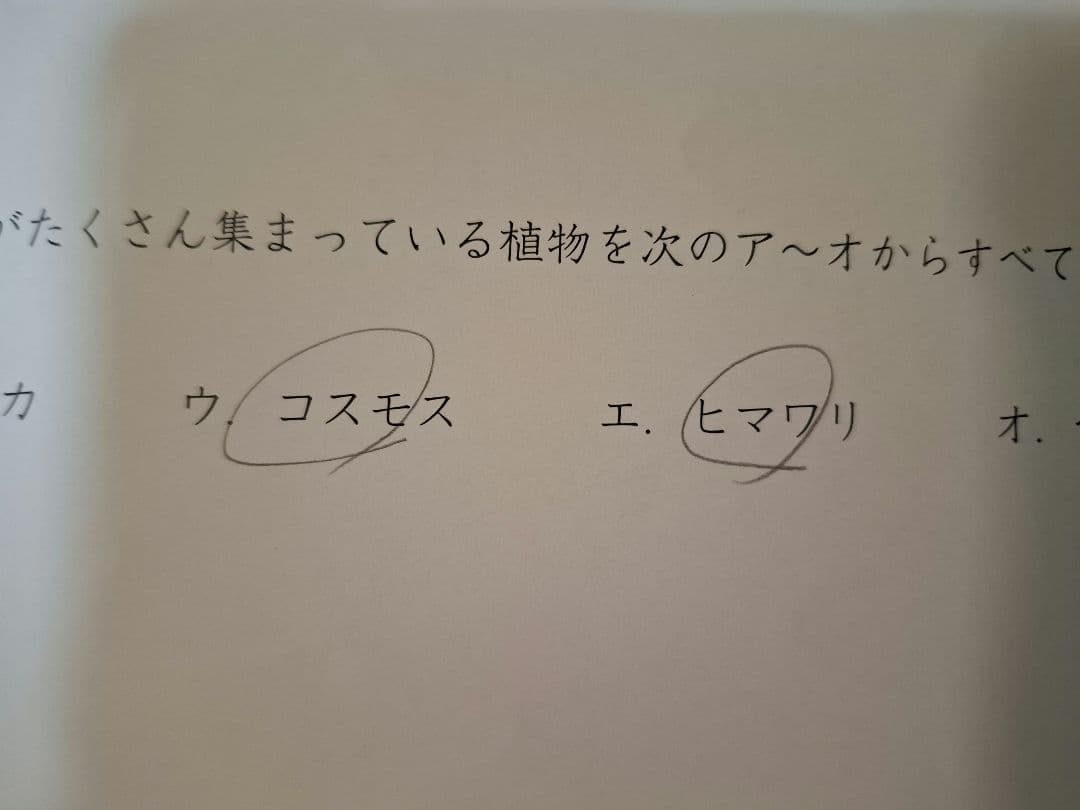 がたくさん集まっている植物を次のア〜オからすべて
カ ウ. コスモス エ. ヒマワリ オ.